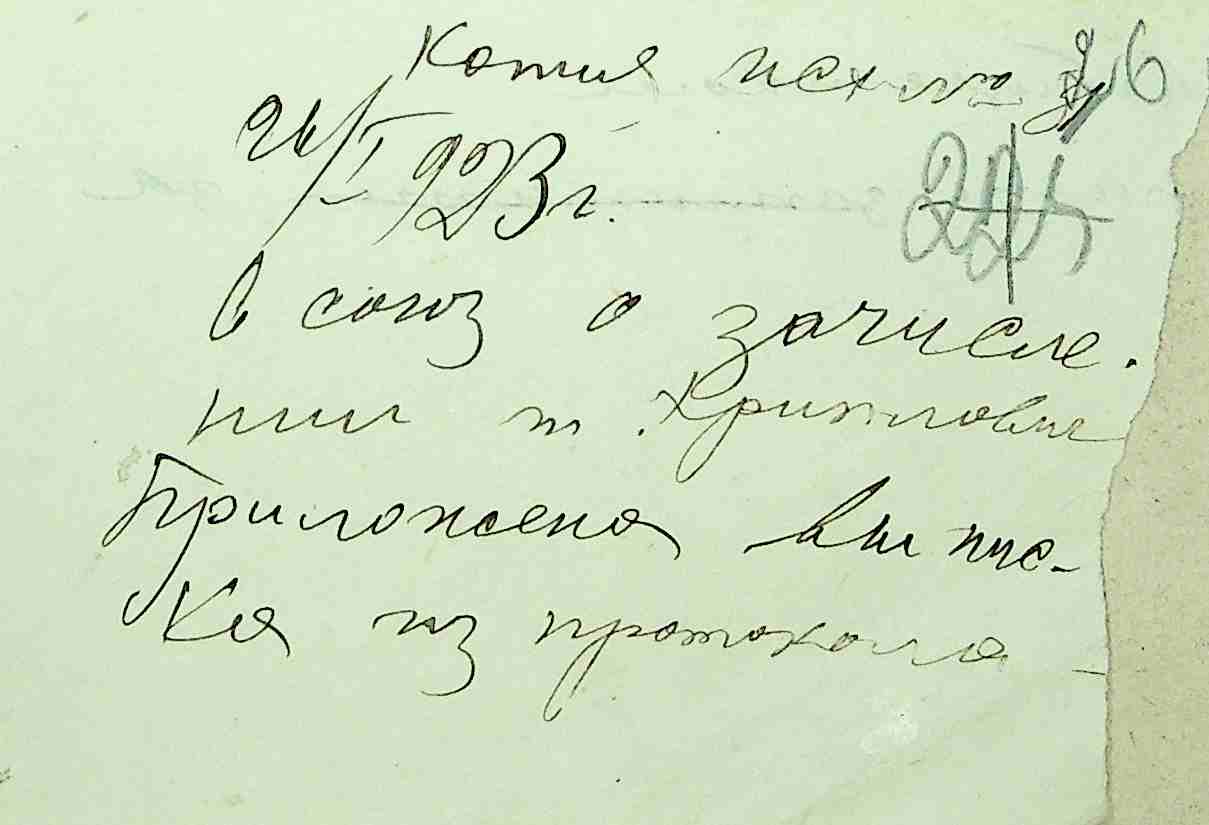 Копия исх № 26
26/I 1923 г.
в союз о зачисле-
нии т.
Приложена выпис-
ка из протокола